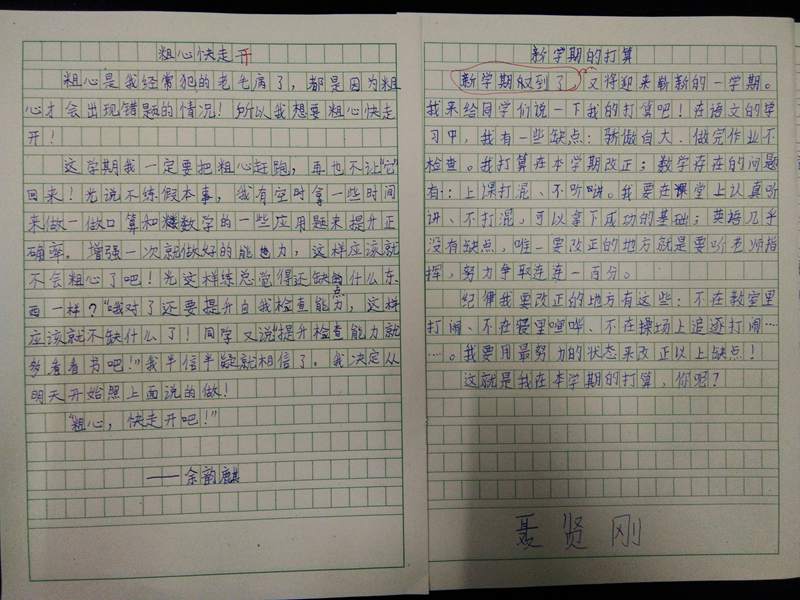 粗心快走开
粗心是我经常犯的老毛病了，都是因为粗
心才会出现错题的情况！所以我想要粗心快走
开！
这学期我一定要把粗心赶跑，再也不让“它”
回来！先说不练假本事，我有空时拿一些时间
来做一做口算和数学的一些应用题来提升正
确率。增强一次就做好的能力，这样应该就
不会粗心了吧！光这样练总觉得还缺点什么东
西一样？“哦对了还要提升自我检查能力，这样
应该就不缺什么了！同学又说“提升检查能力就
多看看书吧！”我半信半疑就相信了。我决定从
明天开始照上面说的做！
“粗心，快走开吧！”
——余韵麒
新学期的打算
新学期到了，又将迎来崭新的一学期。
我来给同学们说一下我的打算吧！在语文的学
习中，我有一些缺点：骄傲自大、做完作业不
检查。我打算在本学期改正；数学存在的问题
有：上课打混、不听讲。我要在课堂上认真听
讲、不打混，可以拿下成功的基础；英语几乎
没有缺点，唯一要改正的地方就是要听老师指
挥，努力争取连连一百分。
纪律我要改正的地方有这些：不在教室里
打闹、不在寝里喧哗、不在操场上追逐打闹……
……。我要用最努力的状态来改正以上缺点！
这就是我在本学期的打算，你呢？
聂贤刚